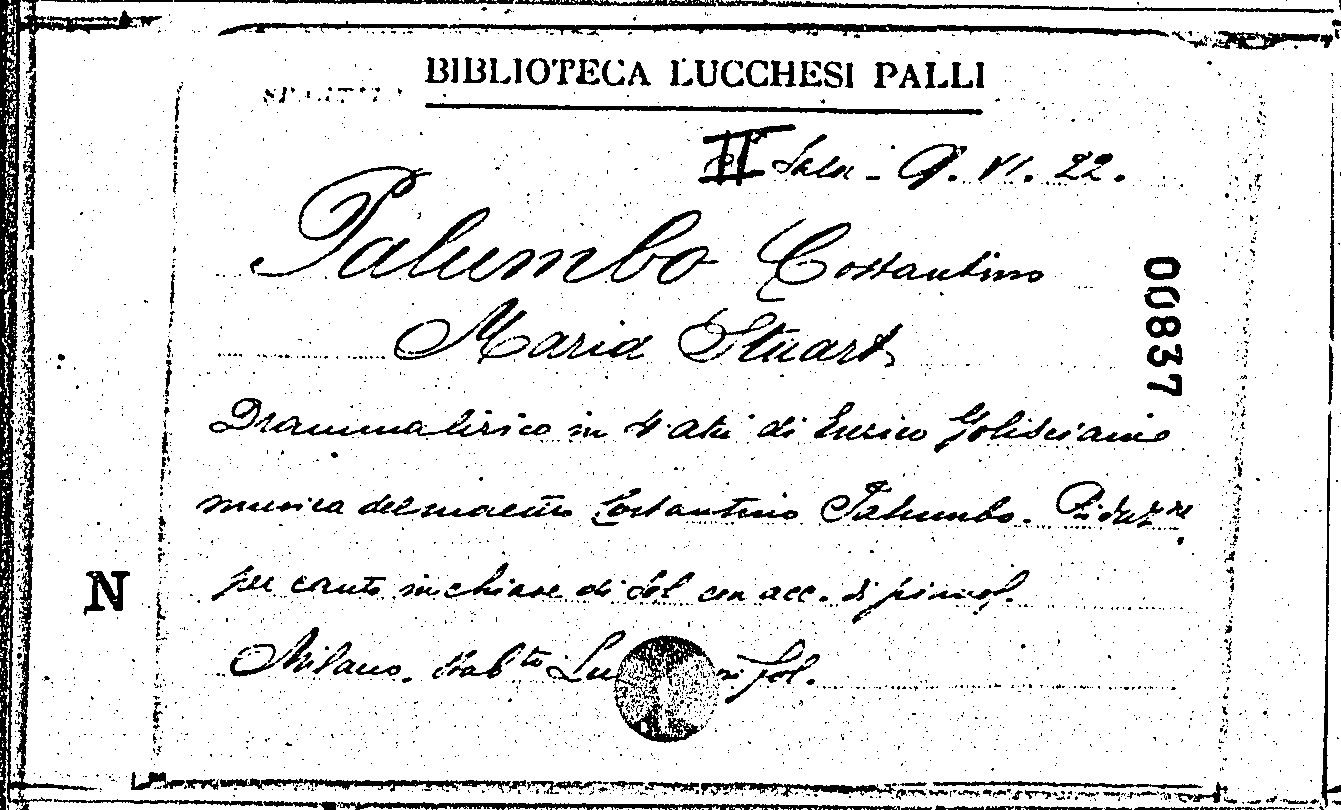 BIBLIOTECA LUCCHESI PALLI
SPARTITI
II Sala - Q. VI. 22.
Palumbo Costantino
Maria Stuart
00837
Dramma lirico in 4 atti di Enrico Golisciani
musica del maestro Costantino Palumbo. Riduz.ne
per canto in chiave di Sol con acc. di pianof.
N
Milano. Stab.to fol.